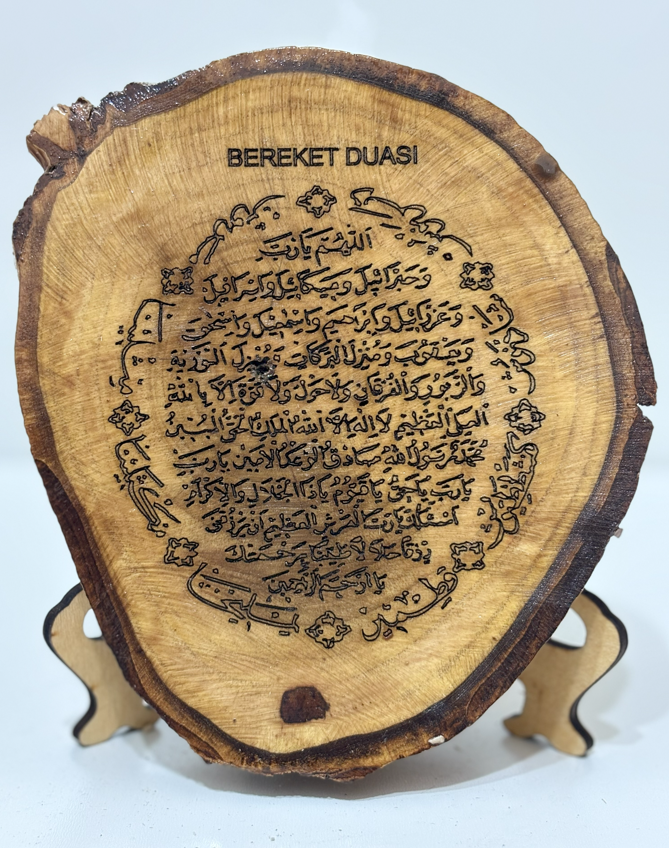 BEREKET DUASI
اللهم يا رب
وجبرائيل وميكائيل واسرائيل
وعزرائيل وابراهيم واسمعيل واسحق
ويعقوب ومنزل البركات ومنزل التورية
والزبور والفرقان ولا حول ولا قوة الا بالله
العلي العظيم لا اله الا الله الملك الحق المبين
محمد رسول الله صادق الوعد الامين يا رب
يا رب يا حي يا قيوم يا ذا الجلال والاكرام
اسئلك يا رب العرش العظيم ان ترزقني
رزقا حلالا طيبا برحمتك
يا ارحم الراحمين